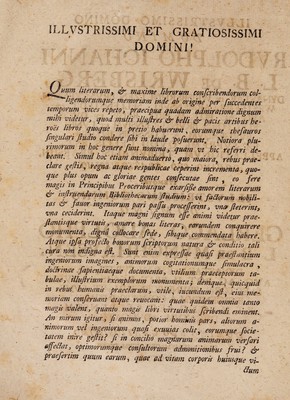 ILLVSTRISSIMI ET GRATIOSISSIMI
DOMINI!
Quum literarum, & maxime librorum conscribendorum col-
ligendorumque memoriam inde ab origine per succedentes
temporum vices repeto, praecipua quadam admiratione dignum
mihi videtur, quod multi illustres & belli & pacis artibus he-
roës libros quoque in pretio habuerunt, eorumque thesauros
singulari studio condere sibi in laude posuerunt. Notiora plu-
rimorum in hoc genere sunt nomina, quam vt hic referri de-
beant. Simul hoc etiam animaduerto, quo maiora, rebus prae-
clare gestis, regna atque respublicae ceperint incrementa, quo-
que plus opum ac gloriae gentes consecutae sint, eo fere
magis in Principibus Proceribusque exarsisse amorem literarum &
instruendarum Bibliothecarum studium: vt factorum nobili-
tas & fauor ingeniorum pari passu processerint, vna steterint,
vna ceciderint. Itaque magni ignaui esse animi videtur prae-
stantisque virtutis, amore bonas literas, earundem conquirere
monumenta, digna collocare sede, sibique commendata habere.
Atque ipsa profecto bonorum scriptorum natura & conditio tali
cura non indigna est. Sunt enim expressae quasi praestantium
ingeniorum imagines, animorum cogitationumque simulacra,
doctrinae sapientiaeque documenta, vtilium praeceptorum ta-
bulae, illustrium exemplorum monumenta; denique, quicquid
in rebus humanis praeclarum, vtile, iucundum est, eius me-
moriam conseruant atque renouant: quae quidem omnia tanto
magis valent, quanto magis libri virtutibus scribendi eminent.
An mirum igitur, si animus, potior hominis pars, aliorum a-
nimorum vel ingeniorum quasi exuuias colit, earumque socie-
tatem mire gestit? si in concilio magnarum animarum versari
affectat, optimorumque consultorum admonitionibus frui? &
praesertim quum earum, quae ad vitam corporis huiusque vi-
ctum